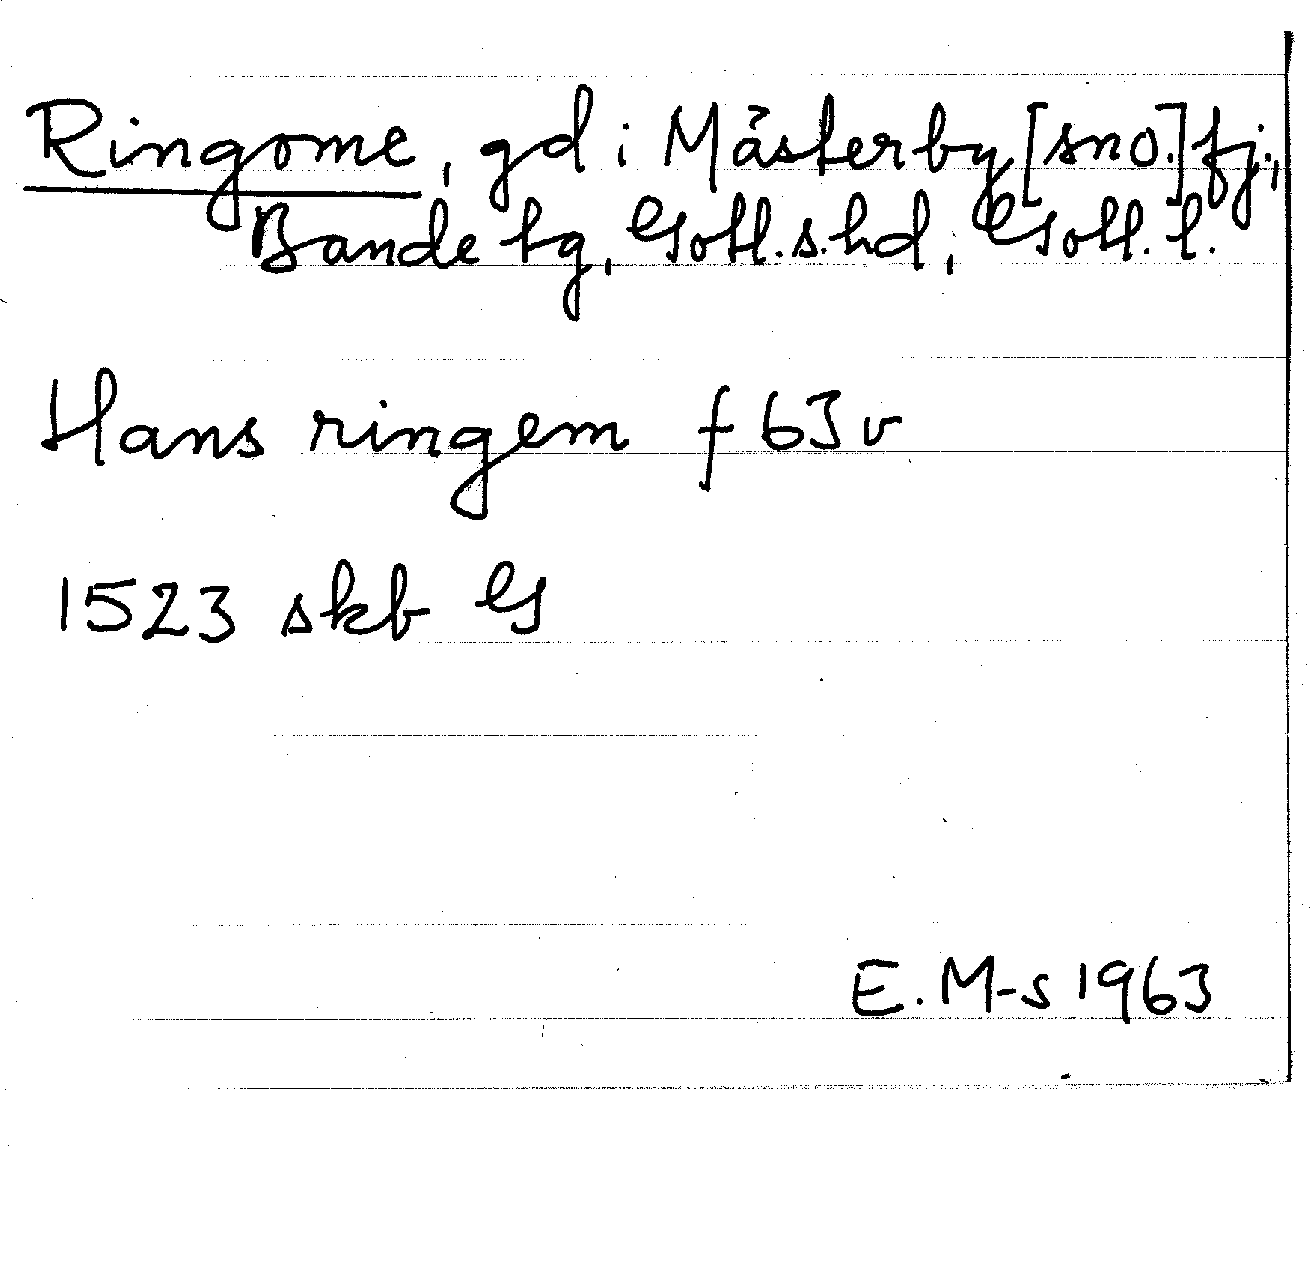 Ringome, gd i Mästerby [sno.] fj.,
Bande tg, Gotl. s. hd, Gotl. l.
Hans ringem f 63 v
1523 skb G
E. M-s 1963